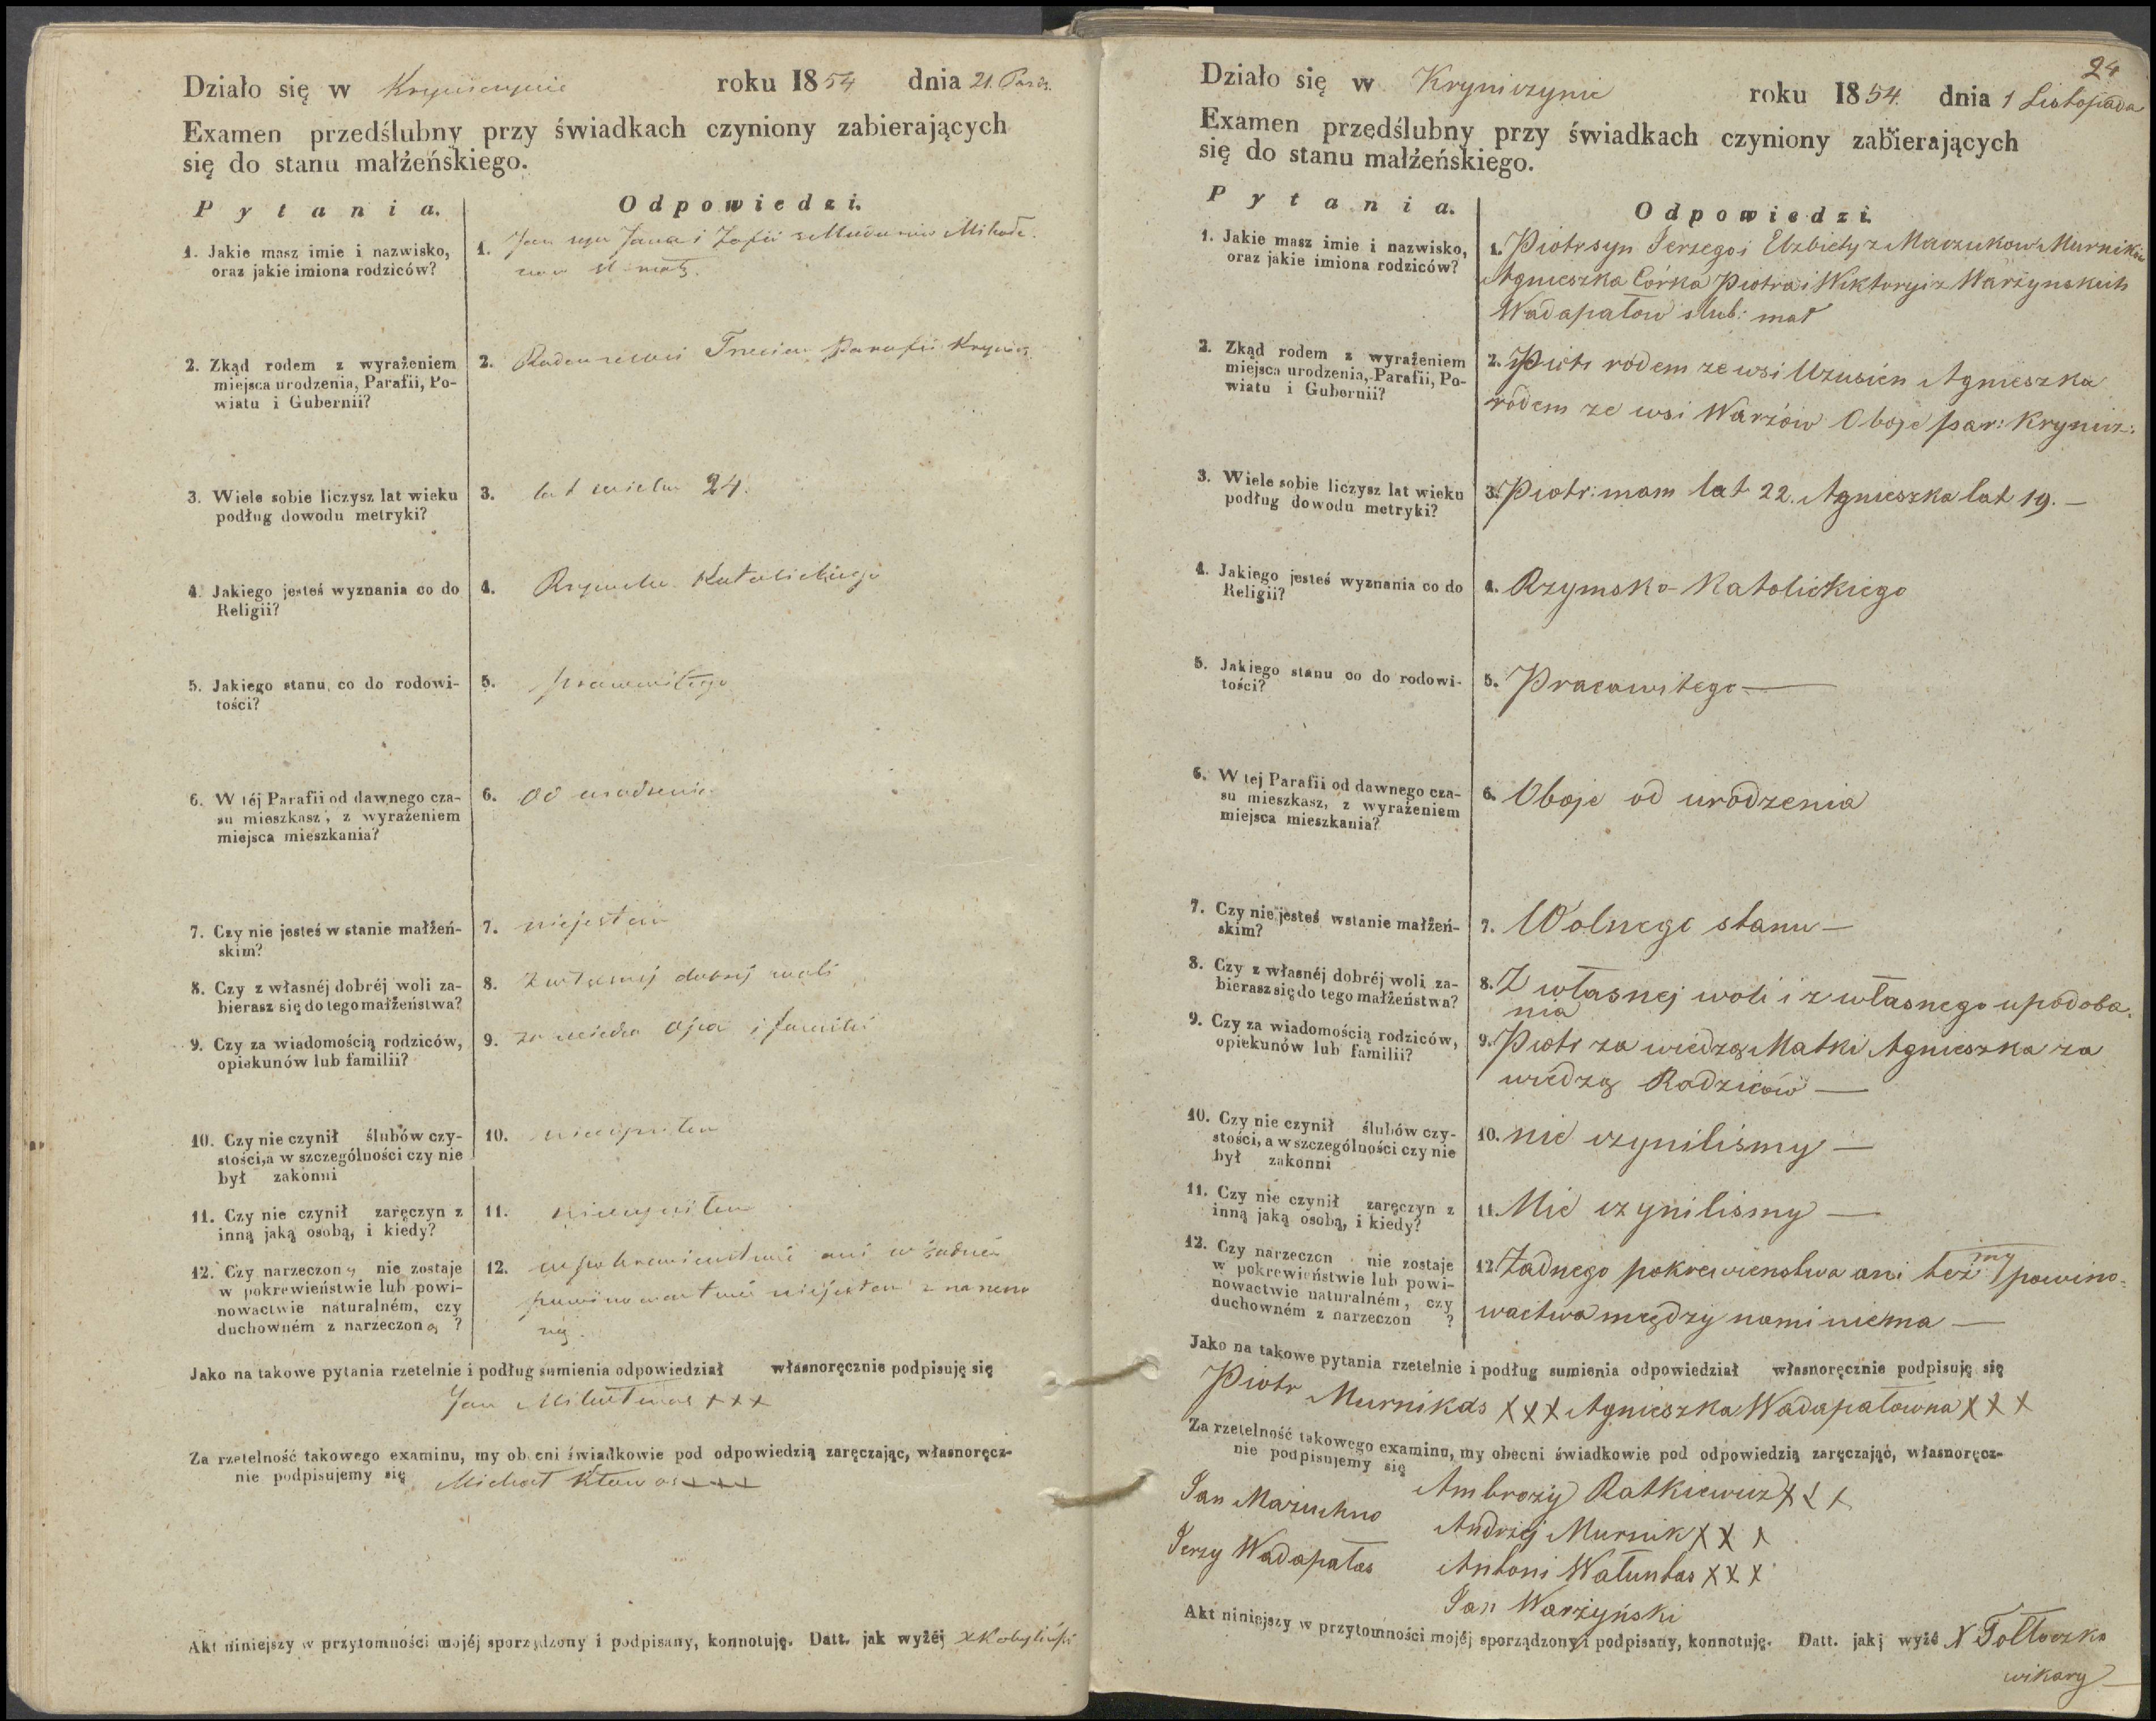 Działo się w Kryniczynie roku 1854 dnia 21. Paźdz.
Examen przedślubny przy świadkach czyniony zabierających
się do stanu małżeńskiego.
Pytania. Odpowiedzi.
1. Jakie masz imie i nazwisko,
oraz jakie imiona rodziców?
1. Jan syn Jana i Zofii z
ślu. małż.
2. Zkąd rodem z wyrażeniem
miejsca urodzenia, Parafii, Po-
wiatu i Gubernii?
2. Rodem ze wsi Parafii Krynicz.
3. Wiele sobie liczysz lat wieku
podług dowodu metryki?
3. lat wieku 24.
4. Jakiego jesteś wyznania co do
Religii?
4. Rzymsko Katolickiego
5. Jakiego stanu co do rodowi-
tości?
5. pracowitego
6. W téj Parafii od dawnego cza-
su mieszkasz, z wyrażeniem
miejsca mieszkania?
6. od urodzenia
7. Czy nie jesteś w stanie małżeń-
skim?
7. niejestem
8. Czy z własnéj dobréj woli za-
bierasz się do tego małżeństwa?
8. z własnej dobrej woli
9. Czy za wiadomością rodziców,
opiekunów lub familii?
9. za wiedzą Ojca i familii
10. Czy nie czynił ślubów czy-
stości, a w szczególności czy nie
był zakonni
10. nieczyniłem
11. Czy nie czynił zaręczyn z
inną jaką osobą, i kiedy?
11. nieczyniłem
12. Czy narzeczoną nie zostaje
w pokrewieństwie lub powi-
nowactwie naturalném, czy
duchowném z narzeczoną ?
12. w pokrewieństwie ani w żadném
powinowactwie niejestem z narzeczo
ną.
Jako na takowe pytania rzetelnie i podług sumienia odpowiedział własnoręcznie podpisuję się
Jan +++
Za rzetelność takowego examinu, my obecni świadkowie pod odpowiedzią zaręczając, własnoręcz-
nie podpisujemy się Michał +++
Akt niniejszy w przytomności mojéj sporządzony i podpisany, konnotuję. Datt. jak wyżéj X Kobyliński
24
Działo się w Kryniczynie roku 1854. dnia 1 Listopada
Examen przedślubny przy świadkach czyniony zabierających
się do stanu małżeńskiego.
Pytania. Odpowiedzi.
1. Jakie masz imie i nazwisko,
oraz jakie imiona rodziców?
1. Piotr syn Jerzego i Elzbiety z Maczukow Murników
Agnieszka Córka Piotra i Wiktoryi z Warżynskich
Wadapałow slub: mał
2. Zkąd rodem z wyrażeniem
miejsca urodzenia, Parafii, Po-
wiatu i Gubernii?
2. Piotr rodem ze wsi Uzusien Agnieszka
rodem ze wsi Warżow Oboje par: Krynicz:
3. Wiele sobie liczysz lat wieku
podług dowodu metryki?
3. Piotr: mam lat 22. Agnieszka lat 19. —
4. Jakiego jesteś wyznania co do
Religii?
4. Rzymsko-Katolickiego
5. Jakiego stanu co do rodowi-
tości?
5. Pracawitego —
6. W tej Parafii od dawnego cza-
su mieszkasz, z wyrażeniem
miejsca mieszkania?
6. Oboje od urodzenia
7. Czy nie jesteś wstanie małżeń-
skim?
7. Wolnego stanu —
8. Czy z własnéj dobréj woli za-
bierasz się do tego małżeństwa?
8. Z własnej woli i z własnego upodoba-
nia
9. Czy za wiadomością rodziców,
opiekunów lub familii?
9. Piotr za wiedzą Matki Agnieszka za
wiedzą Rodziców —
10. Czy nie czynił ślubów czy-
stości, a w szczególności czy nie
był zakonni
10. nie czyniliśmy —
11. Czy nie czynił zaręczyn z
inną jaką osobą, i kiedy?
11. Nie czynilismy —
12. Czy narzeczon nie zostaje
w pokrewieństwie lub powi-
nowactwie naturalném, czy
duchowném z narzeczon ?
12. Żadnego pokrewienstwa ani też my powino-
wactwa między nami niema —
Jako na takowe pytania rzetelnie i podług sumienia odpowiedział własnoręcznie podpisuję się
Piotr Murnikas XXX Agnieszka Wadapałowna XXX
Za rzetelność takowego examinu, my obecni świadkowie pod odpowiedzią zaręczając, własnoręcz-
nie podpisujemy się Ambrozy Ratkiewicz XXX
Jan Mażuchno Andrzej Murnik XXX
Jerzy Wadapałas Antoni Wałuntas XXX
Jan Warżyński
Akt niniejszy w przytomności mojéj sporządzony i podpisany, konnotuję. Datt. jak wyżé X Tołłoczko
wikary